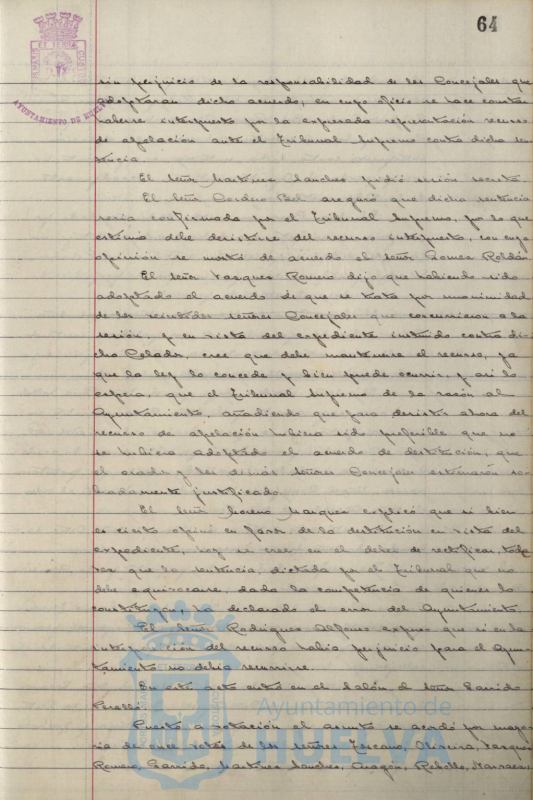 64
AYUNTAMIENTO DE HUELVA
sin perjuicio de la responsabilidad de los Concejales que
adoptaran dicho acuerdo, en cuyo oficio se hace constar
haberse interpuesto por la expresada representación recurso
de apelación ante el Tribunal Supremo contra dicha sen
tencia.
El Señor Martínez Sanchez pidió sesión secreta.
El Señor Cordero Bel aseguró que dicha sentencia
sería confirmada por el Tribunal Supremo, por lo que
estima debe desistirse del recurso interpuesto, con cuya
opinión se mostró de acuerdo el Señor Gomez Roldán
El Señor Vazquez Romero dijo que habiendo sido
adoptado el acuerdo de que se trata por unanimidad
de los veintidos señores Concejales que concurrieron a la
sesión, y en vista del expediente instruido contra di
cho Celador, cree que debe mantenerse el recurso, ya
que la ley lo concede y bien puede ocurrir, y así lo
espera, que el Tribunal Supremo de la razón al
Ayuntamiento, añadiendo que para desistir ahora del
recurso de apelación hubiera sido preferible que no
se hubiera adoptado el acuerdo de destitución, que
el orador y los demás Señores Concejales estimaron so
bradamente justificado.
El Señor Moreno Marquez explicó que si bien
es cierto opinó en favor de la destitución en vista del
expediente, hoy se cree en el deber de rectificar, toda
vez que la sentencia, dictada por el Tribunal que no
debe equivocarse, dada la competencia de quienes lo
constituyen, ha declarado el error del Ayuntamiento.
El Señor Rodriguez Alfonso expuso que si en la
interposición del recurso había perjuicio para el Ayun
tamiento no debía recurrirse.
En este acto entró en el Salón el Señor Garrido
Perelló.
Puesto a votación el asunto se acordó por mayo
ría de once votos de los señores Lazcano, Oliveira, Vazquez
Romero, Garrido, Martínez Sanchez, Aragón, Rebollo, Barraca,
Ayuntamiento de
HUELVA